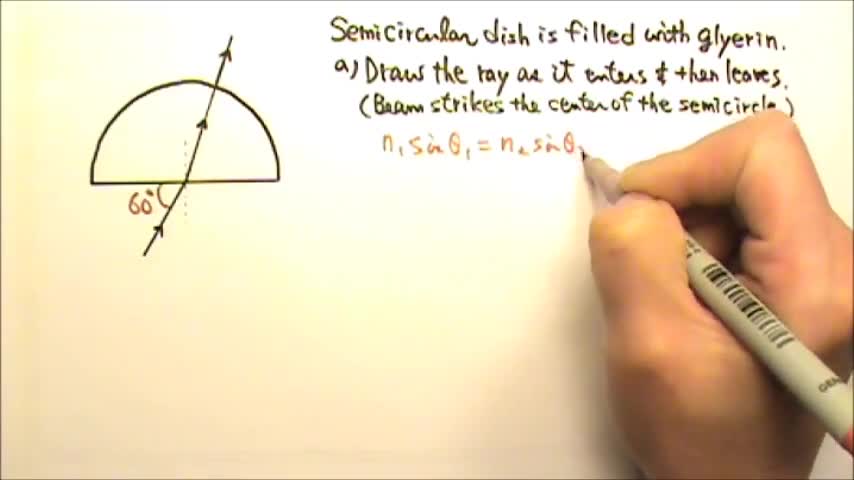 Semicircular dish is filled with glyerin.
a) Draw the ray as it enters & then leaves.
(Beam strikes the center of the semicircle.)
n₁ sin θ₁ = n₂ sin θ
60°